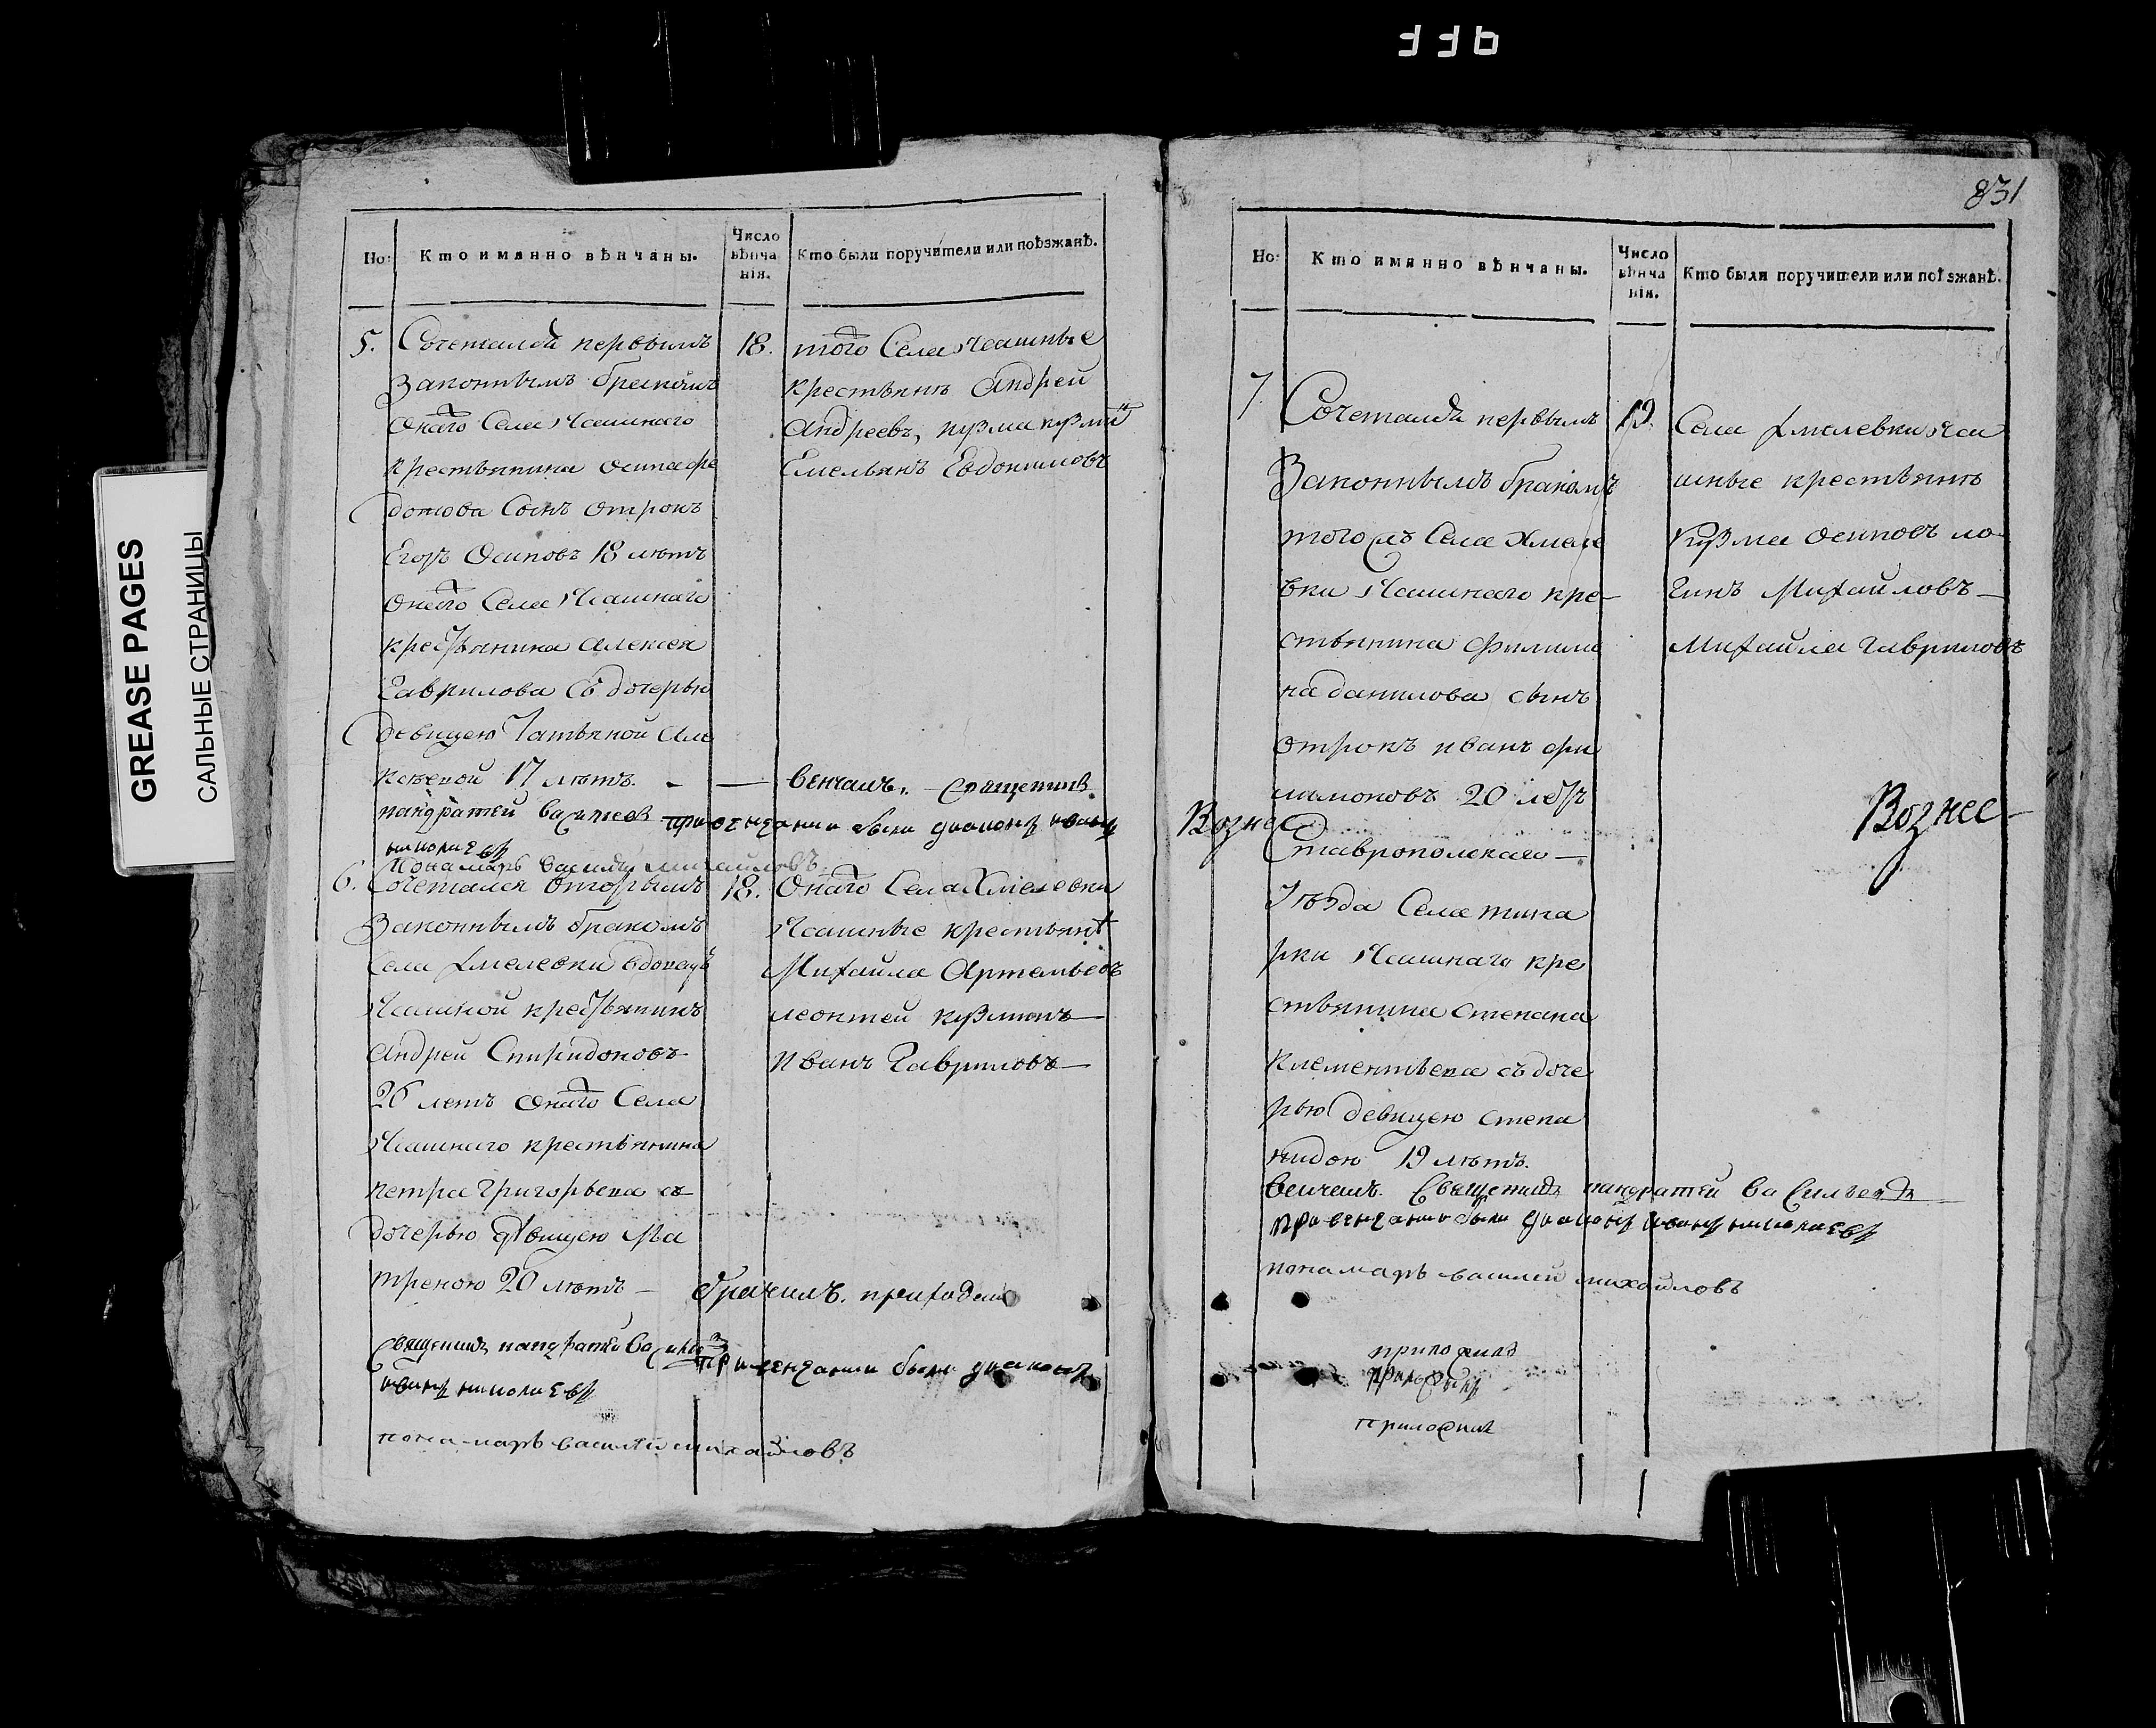 336
GREASE PAGES
САЛЬНЫЕ СТРАНИЦЫ
Но:
Кто имянно вѣнчаны.
Число вѣнчанія.
Кто были поручители или поѣзжанѣ.
5. Сочетался первымъ
законнымъ бракомъ
онаго Села Чашнаго
крестьянина осипа фе
дотова Сынъ отрокъ
Егоръ Осиповъ 18 лѣтъ
онаго Села Чашнаго
крестьянина Алексея
Гаврилова съ дочерью
девицею Татьяной Але
ксеевой 17 лѣтъ.
18.
того Села чашные
крестьянѣ Андрей
Андреевъ, кузма кузми
Емельянъ Евдокимовъ
венчалъ. Священникъ
пандратей васильев при венчании были диаконъ иванъ
николаевъ
Понамарь василий михайловъ.
6. Сочетался вторымъ
Законнымъ бракомъ
села хмелевки вдовецъ
Чашной крестьянинъ
Андрей Спиридоновъ
26 летъ онаго Села
Чашнаго крестьянина
петра Григорьева съ
дочерью девицею Ма
треною 20 лѣтъ
18.
Онаго Села Хмелевки
Чашные крестьянѣ
Михайла Артемьевъ
леонтей кузминъ
Иванъ Гавриловъ
священникъ пандратей
при венчании были диаконъ
иванъ николаевъ
понамарь василей михайловъ
831
Но:
Кто имянно вѣнчаны.
Число вѣнчанія.
Кто были поручители или поѣзжанѣ.
7. Сочетался первымъ
Законнымъ бракомъ
того жъ Села Хмеле
вки Чашнаго кре-
стьянина Филимо
на данилова сынъ
отрокъ иванъ фи
лимоновъ 20 летъ
Ставрополскаго
Уѣзда Села тина
рки Чашнаго кре
стьянина степана
клементьева съ доче
рью девицею степа
нидою 19 лѣтъ.
19.
Села хмелевки ча
шные крестьянѣ
Кузма осиповъ ло
гинъ Михайловъ
Михайла гавриловъ
Вознес
Вознес
венчалъ. Священникъ пандратей Васильевъ
при венчании были диаконъ иванъ николаевъ
понамарь василей михайловъ